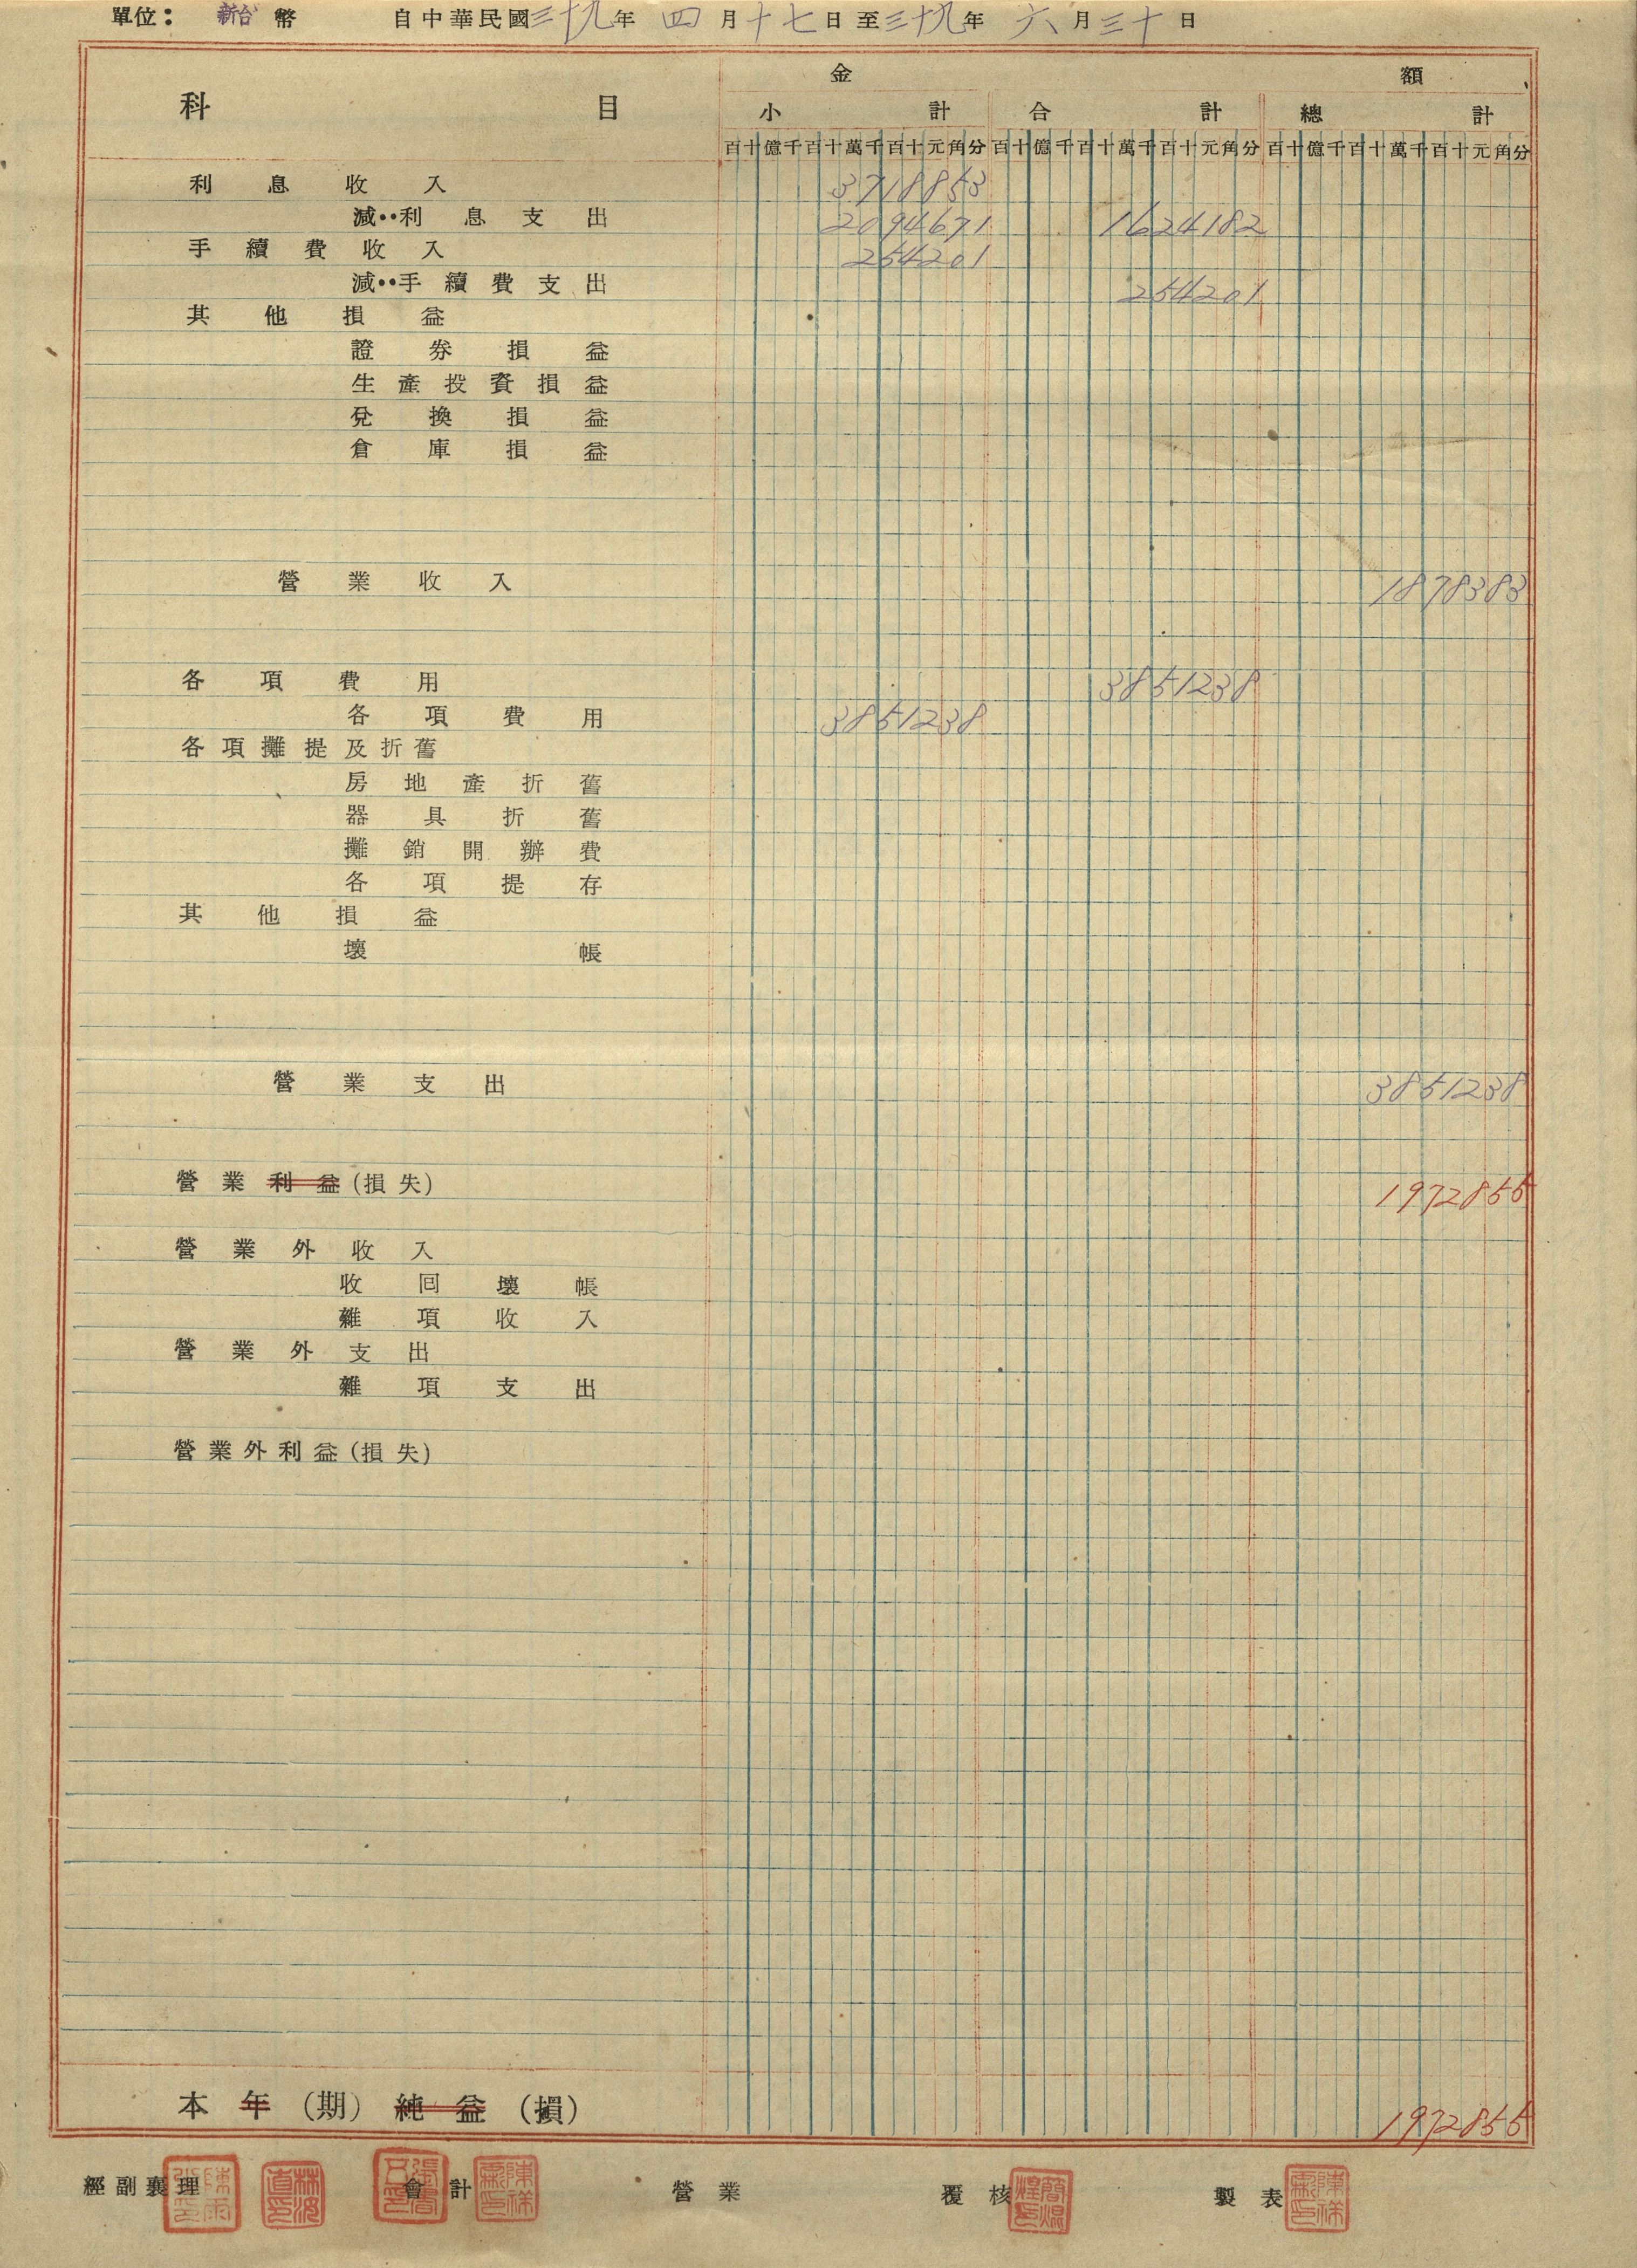 單位： 新台幣 自中華民國三十九年 四月十七日至三十九年 六月三十日
科目 金額
小計 合計 總計
百十億千百十萬千百十元角分 百十億千百十萬千百十元角分 百十億千百十萬千百十元角分
利息收入 3718853
減‥利息支出 2094671 1624182
手續費收入 254201
減‥手續費支出 254201
其他損益
證券損益
生產投資損益
兌換損益
倉庫損益
營業收入 1878383
各項費用 3851238
各項費用 3851238
各項攤提及折舊
房地產折舊
器具折舊
攤銷開辦費
各項提存
其他損益
壞帳
營業支出 3851238
營業利益(損失) 1972855
營業外收入
收回壞帳
雜項收入
營業外支出
雜項支出
營業外利益(損失)
本年(期)純益(損) 1972855
經副襄理 會計 營業 覆核 製表